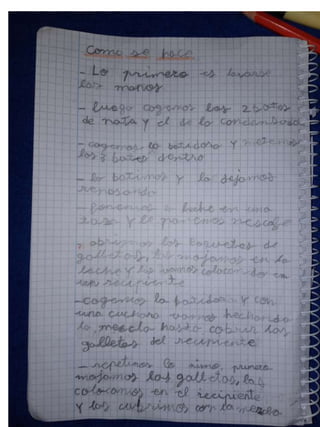 Como se hace
- Lo primero es lavarse
las manos
- luego cogemos los 2 botes
de nata y el de la condensada
- cogemos la batidora y metemos
los 3 botes dentro
- lo batimos y lo dejamos
reposando
- ponemos a leche en una
taza y le ponemos nescafe
- abrimos los paquetes de
galletas, las mojamos en la
leche y las vamos colocando en
un recipiente
- cogemos la batidora y con
una cuchara vamos hechando
la mezcla hasta cubrir las
galletas del recipiente
- repetimos lo mismo, primero
mojamos las galletas, las
colocamos en el recipiente
y las cubrimos con la mezcla